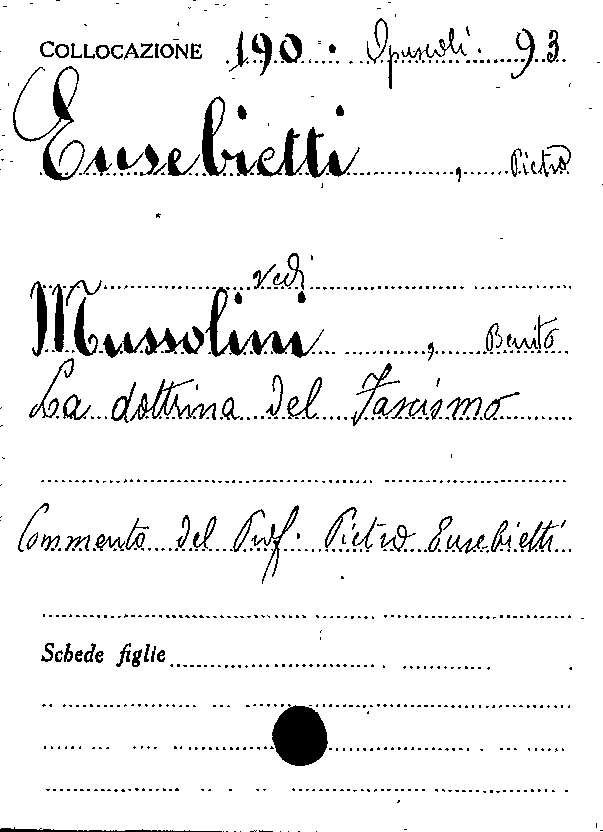 COLLOCAZIONE 190. Opuscoli. 93
Eusebietti, Pietro
vedi
Mussolini, Benito
La dottrina del Fascismo
Commento del Prof. Pietro Eusebietti
Schede figlie